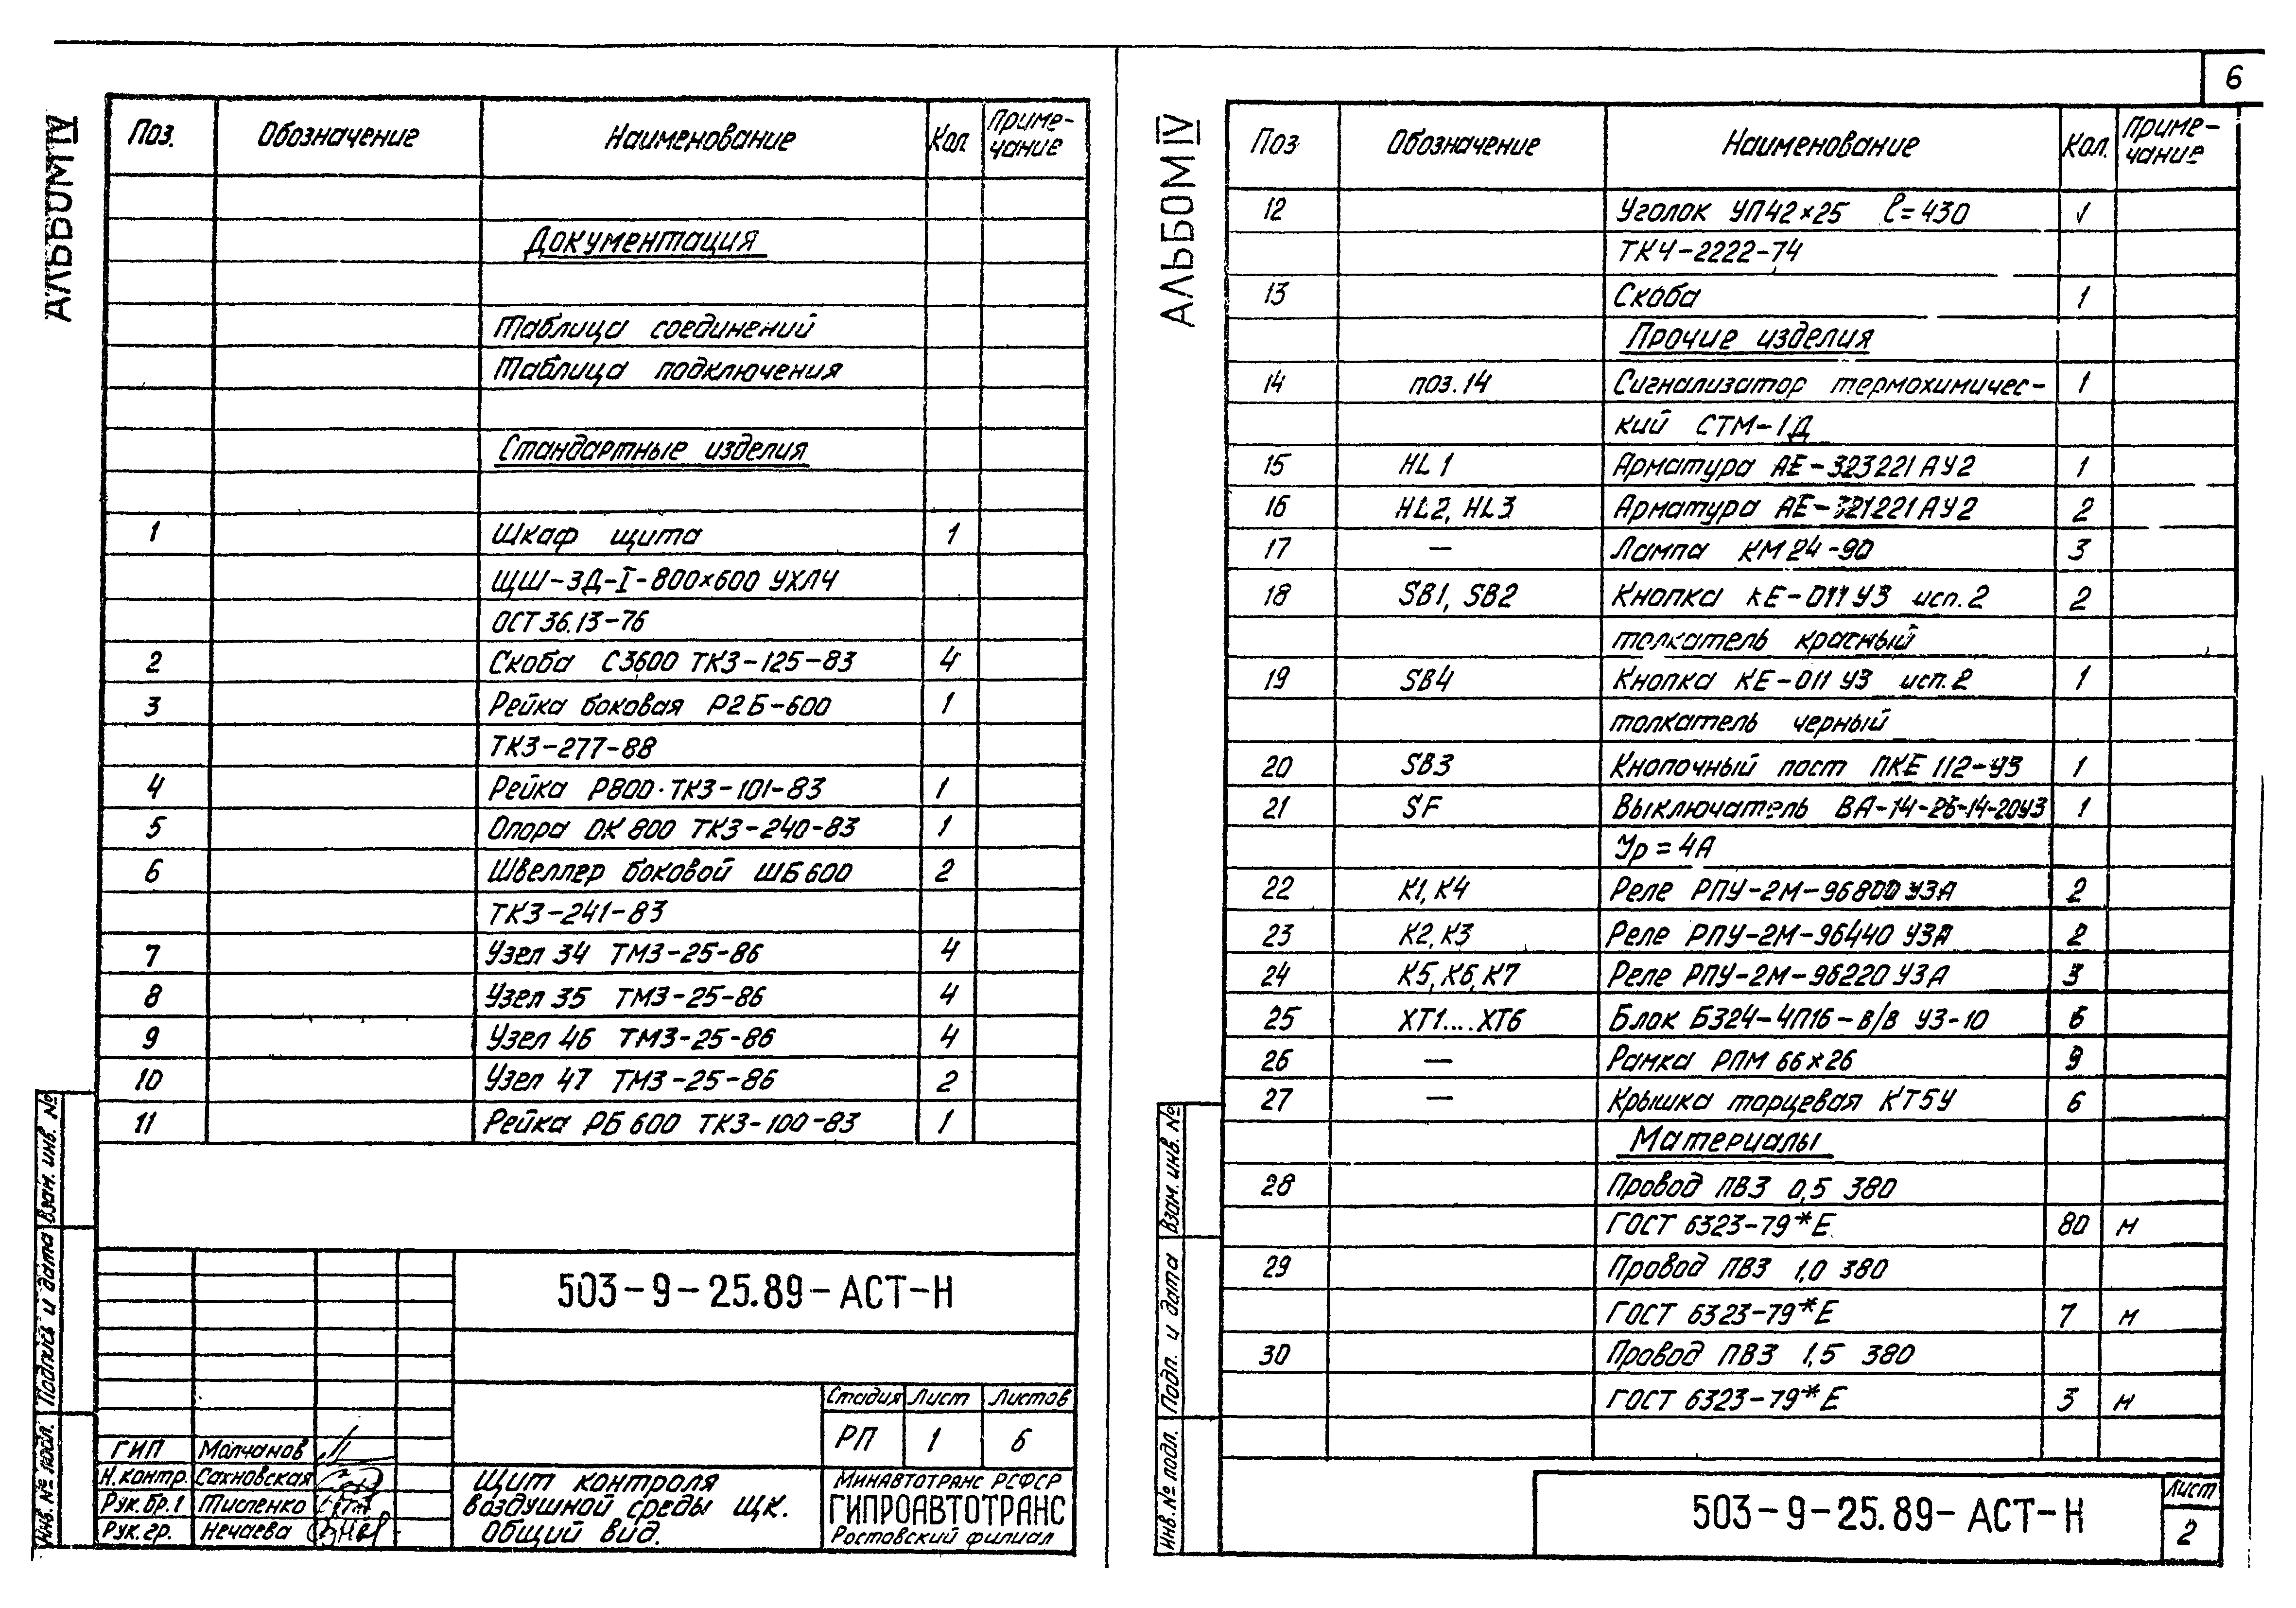 6
АЛЬБОМ IV
Поз. Обозначение Наименование Кол Приме-
чание
Документация
Таблица соединений
Таблица подключения
Стандартные изделия
1 Шкаф щита 1
ЩШ-ЗД-I-800×600 УХЛ4
ОСТ 36.13-76
2 Скоба С3600 ТК3-125-83 4
3 Рейка боковая Р2Б-600 1
ТК3-277-88
4 Рейка Р800·ТК3-101-83 1
5 Опора ОК 800 ТК3-240-83 1
6 Швеллер боковой ШБ600 2
ТК3-241-83
7 Узел 34 ТМ3-25-86 4
8 Узел 35 ТМ3-25-86 4
9 Узел 46 ТМ3-25-86 4
10 Узел 47 ТМ3-25-86 2
11 Рейка РБ 600 ТК3-100-83 1
503-9-25.89-АСТ-Н
Стадия Лист Листов
РП 1 6
ГИП Молчанов
Н.контр. Сахновская
Рук.бр.1 Тисленко
Рук.гр. Нечаева
Щит контроля
воздушной среды ЩК.
Общий вид.
Минавтотранс РСФСР
ГИПРОАВТОТРАНС
Ростовский филиал
Инв. № подл. Подпись и дата Взам. инв. №
АЛЬБОМ IV
Поз Обозначение Наименование Кол. Приме-
чание
12 Уголок УП42×25 l=430 1
ТК4-2222-74
13 Скоба 1
Прочие изделия
14 поз.14 Сигнализатор термохимичес- 1
кий СТМ-1Д
15 HL1 Арматура АЕ-323221АУ2 1
16 HL2, HL3 Арматура АЕ-321221АУ2 2
17 — Лампа КМ24-90 3
18 SB1, SB2 Кнопка КЕ-011У3 исп.2 2
толкатель красный
19 SB4 Кнопка КЕ-011 У3 исп.2 1
толкатель черный
20 SB3 Кнопочный пост ПКЕ 112-У3 1
21 SF Выключатель ВА-14-26-14-20У3 1
Ур = 4А
22 К1, К4 Реле РПУ-2М-96800 У3А 2
23 К2, К3 Реле РПУ-2М-96440 У3А 2
24 К5, К6, К7 Реле РПУ-2М-96220 У3А 3
25 ХТ1....ХТ6 Блок БЗ24-4П16-в/в У3-10 6
26 — Рамка РПМ 66×26 9
27 — Крышка торцевая КТ5У 6
Материалы
28 Провод ПВ3 0,5 380
ГОСТ 6323-79*Е 80 м
29 Провод ПВ3 1,0 380
ГОСТ 6323-79*Е 7 м
30 Провод ПВ3 1,5 380
ГОСТ 6323-79*Е 3 м
503-9-25.89-АСТ-Н
Лист
2
Инв. № подл. Подп. и дата Взам. инв. №